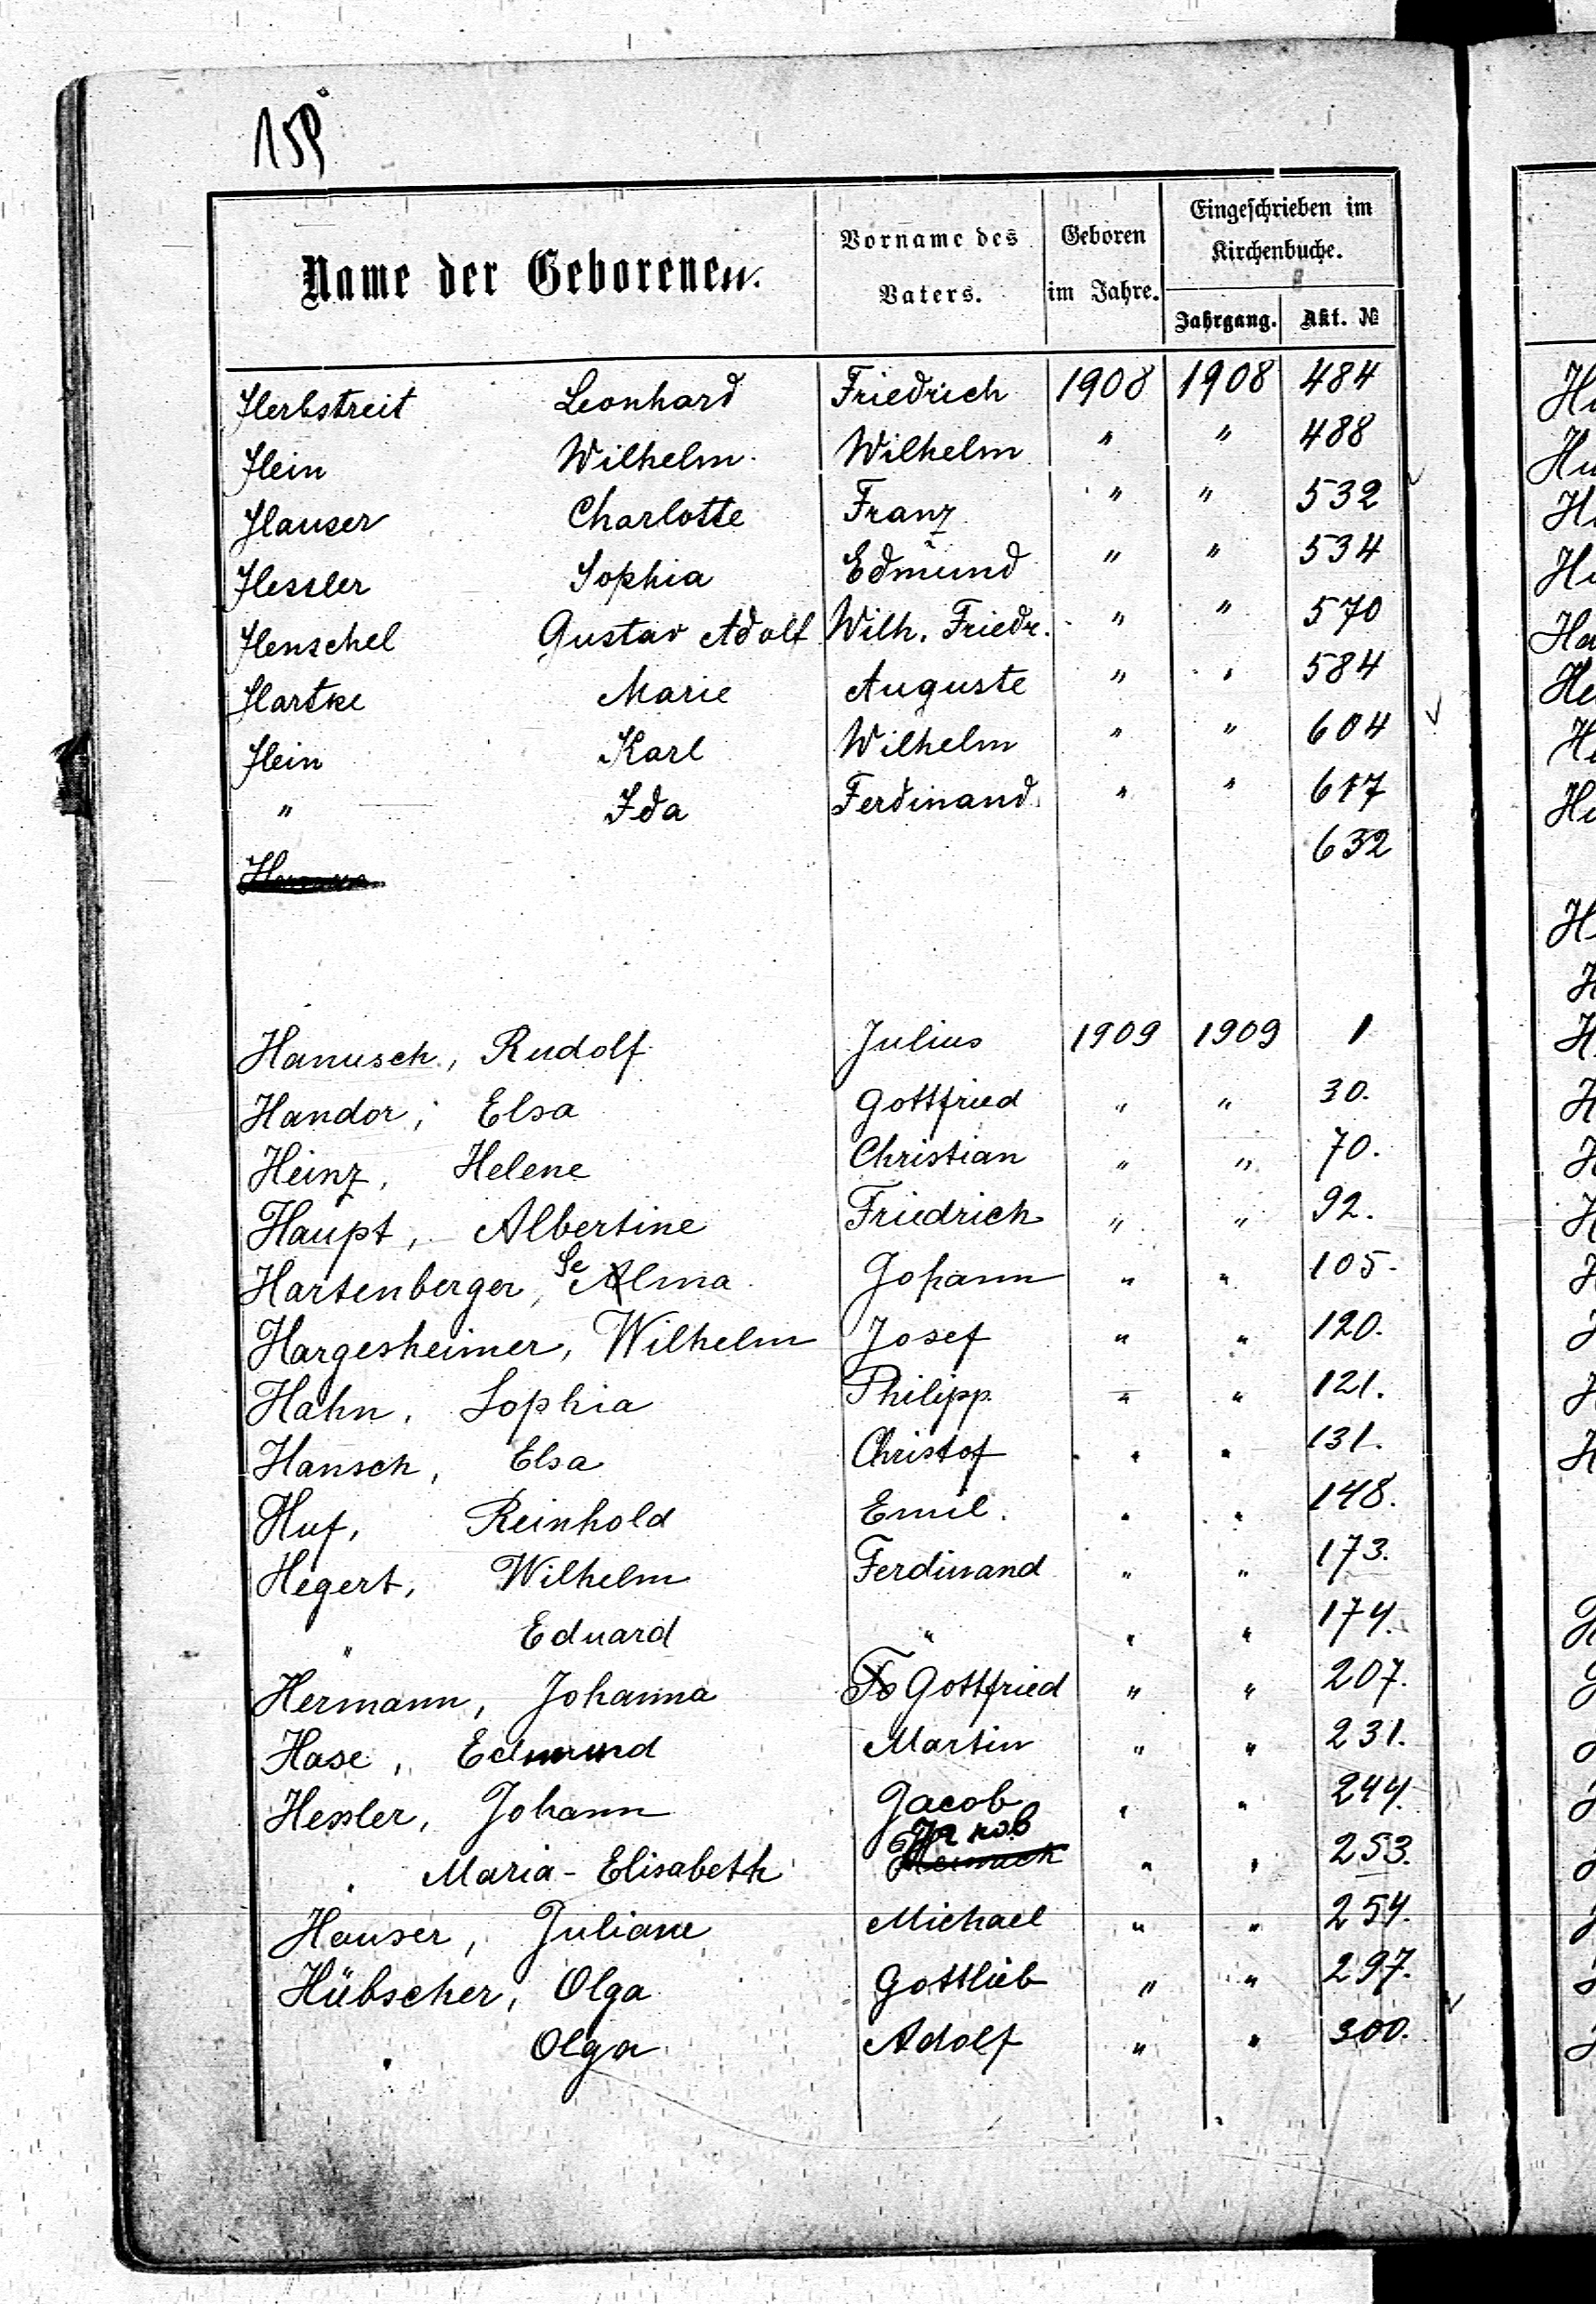 159
Name der Geborenen.
Vorname des Vaters.
Geboren im Jahre.
Eingeschrieben im Kirchenbuche.
Jahrgang. Akt. №
Herbstreit Leonhard Friedrich 1908 1908 484
Hein Wilhelm Wilhelm " " 488
Hauser Charlotte Franz " " 532
Hessler Sophia Edmund " " 534
Henschel Gustav Adolf Wilh. Friedr. " " 570
Hartke Marie Auguste " " 584
Hein Karl Wilhelm " " 604
" Ida Ferdinand " " 617
632
Hanusch, Rudolf Julius 1909 1909 1
Handor, Elsa Gottfried " " 30.
Heinz, Helene Christian " " 70.
Haupt, Albertine Friedrich " " 92.
Hartenberger, Selma Johann " " 105.
Hargesheimer, Wilhelm Josef " " 120.
Hahn, Sophia Philipp. " " 121.
Hansch, Elsa Christof " " 131.
Huf, Reinhold Emil. " " 148.
Hegert, Wilhelm Ferdinand " " 173.
" Eduard " " " 174.
Hermann, Johanna Gottfried " " 207.
Hase, Edmund Martin " " 231.
Hessler, Johann Jacob " " 244.
" Maria-Elisabeth Jakob " " 253.
Hauser, Juliane Michael " " 254.
Hübscher, Olga Gottlieb " " 297.
" Olga Adolf " " 300.